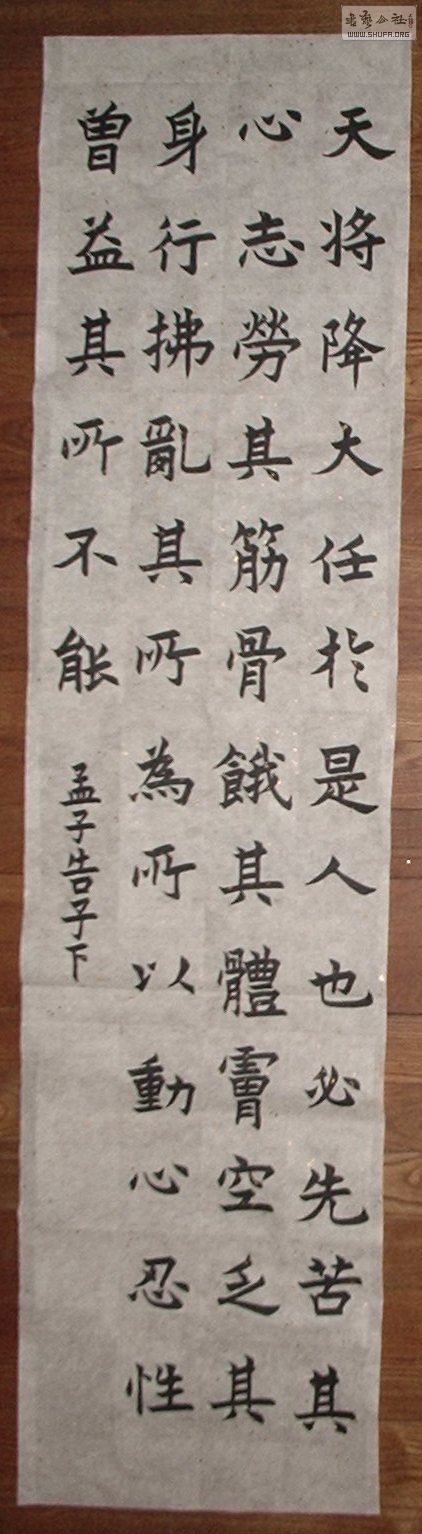 天将降大任於是人也必先苦其
心志勞其筋骨餓其體膚空乏其
身行拂亂其所為所以動心忍性
曽益其所不能
孟子告子下
書藝公社
WWW.SHUFA.ORG